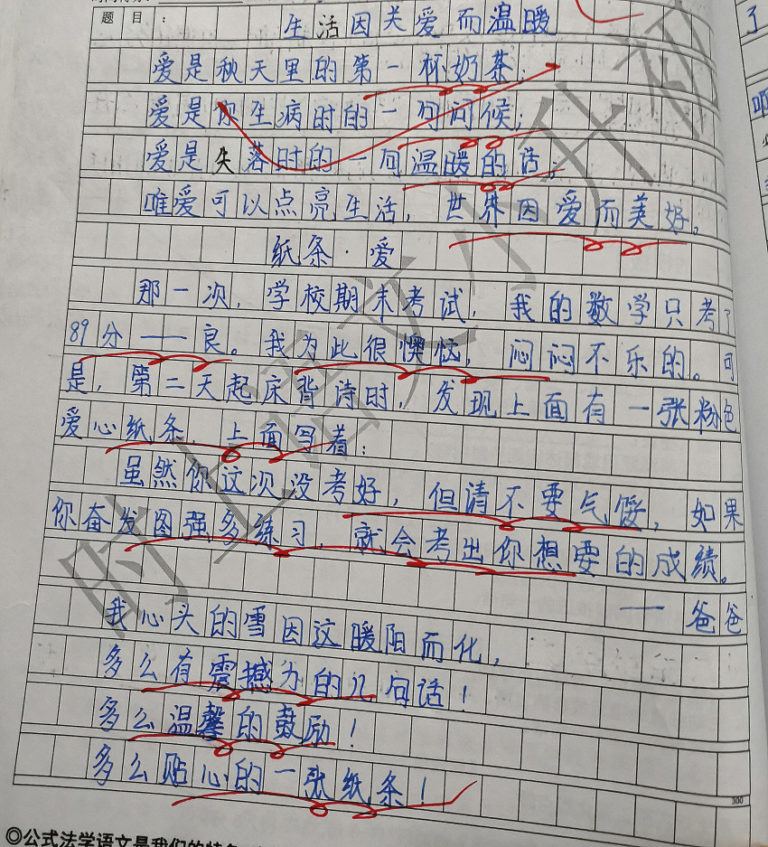 题 目：
生活因关爱而温暖
爱是秋天里的第一杯奶茶；
爱是你生病时的一句问候；
爱是失落时的一句温暖的话；
唯爱可以点亮生活，世界因爱而美好。
纸条·爱
那一次，学校期末考试，我的数学只考了
89分——良。我为此很懊恼，闷闷不乐的。可
是，第二天起床背诗时，发现上面有一张粉色
爱心纸条，上面写着：
虽然你这次没考好，但请不要气馁，如果
你奋发图强多练习，就会考出你想要的成绩。
——爸爸
我心头的雪因这暖阳而化，
多么有震撼力的几句话！
多么温馨的鼓励！
多么贴心的一张纸条！
300
◎公式法学语文是我们的特色
时上语文小升初